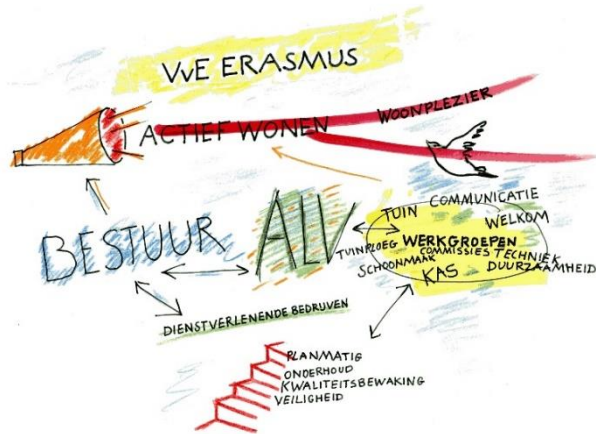 VvE ERASMUS
WOONPLEZIER
ACTIEF WONEN
TUIN COMMUNICATIE
WELKOM
BESTUUR
ALV
TUINPLOEG WERKGROEPEN
COMMISSIES TECHNIEK
SCHOONMAAK DUURZAAMHEID
KAS
DIENSTVERLENENDE BEDRIJVEN
PLANMATIG
ONDERHOUD
KWALITEITSBEWAKING
VEILIGHEID